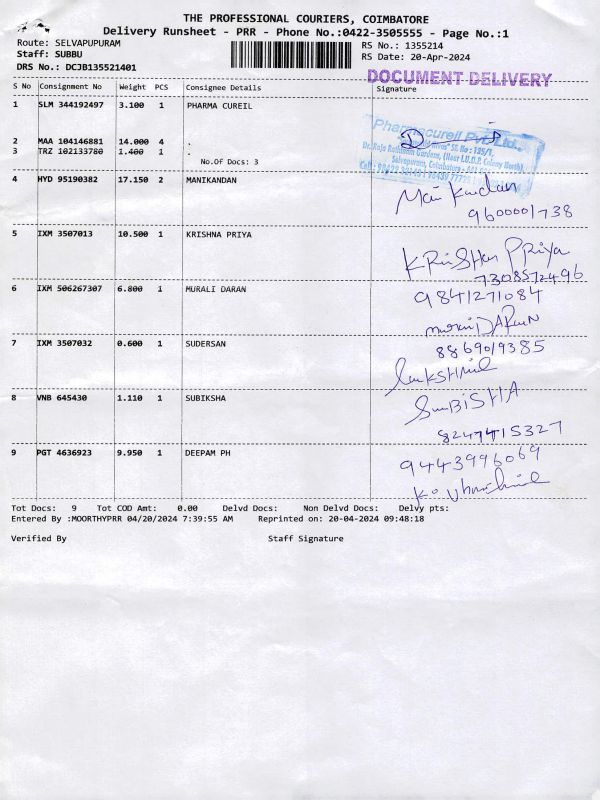 THE PROFESSIONAL COURIERS, COIMBATORE
Delivery Runsheet - PRR - Phone No.:0422-3505555 - Page No.:1
Route: SELVAPUPURAM
Staff: SUBBU
DRS No.: DCJB135521401
RS No.: 1355214
RS Date: 20-Apr-2024
DOCUMENT DELIVERY
S No Consignment No Weight PCS Consignee Details Signature
1 SLM 344192497 3.100 1 PHARMA CUREIL
2 MAA 104146881 14.000 4 .
3 TRZ 102133780 1.400 1 .
No.Of Docs: 3
Pharmacureil Pvt. Ltd.,
4 HYD 95190382 17.150 2 MANIKANDAN
Mani Kandan
9600001738
5 IXM 3507013 10.500 1 KRISHNA PRIYA
KRiSHan PRiYa
7308572496
6 IXM 506267307 6.800 1 MURALI DARAN
9841271084
murali DARaN
7 IXM 3507032 0.600 1 SUDERSAN
8869019385
8 VNB 645430 1.110 1 SUBIKSHA
SuBiSHA
8247415327
9 PGT 4636923 9.950 1 DEEPAM PH
9443996069
Tot Docs: 9 Tot COD Amt: 0.00 Delvd Docs: Non Delvd Docs: Delvy pts:
Entered By :MOORTHYPRR 04/20/2024 7:39:55 AM Reprinted on: 20-04-2024 09:48:18
Verified By Staff Signature